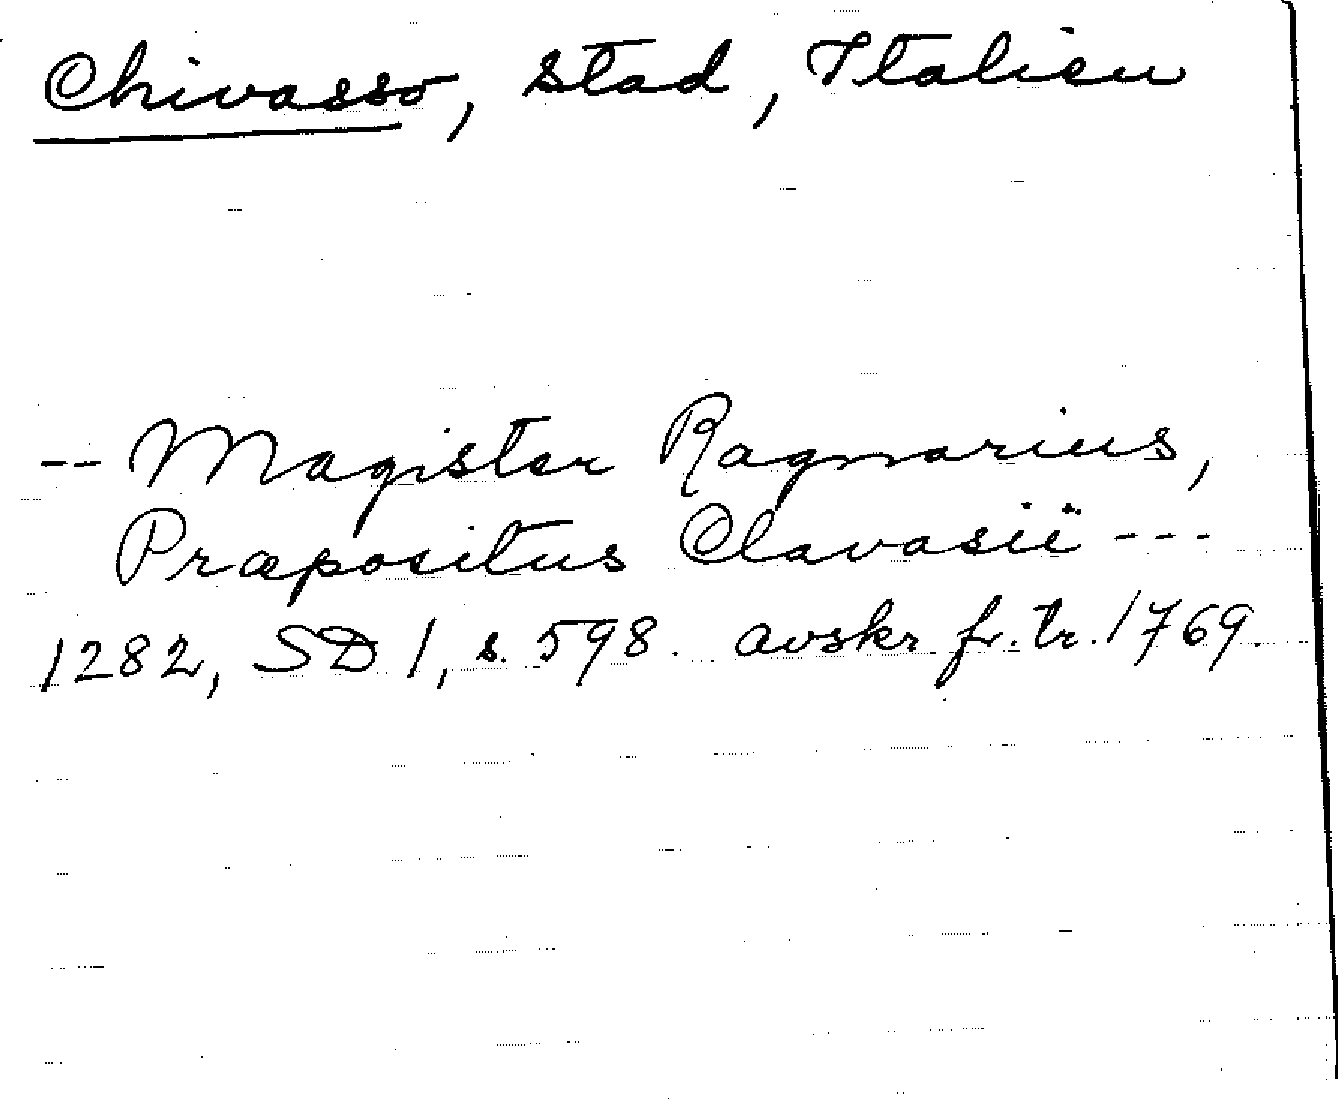 Chivasso, stad, Italien
-- Magister Ragnarius,
Præpositus Clavasii ---
1282, SD 1, s. 598. avskr fr. tr. 1769.